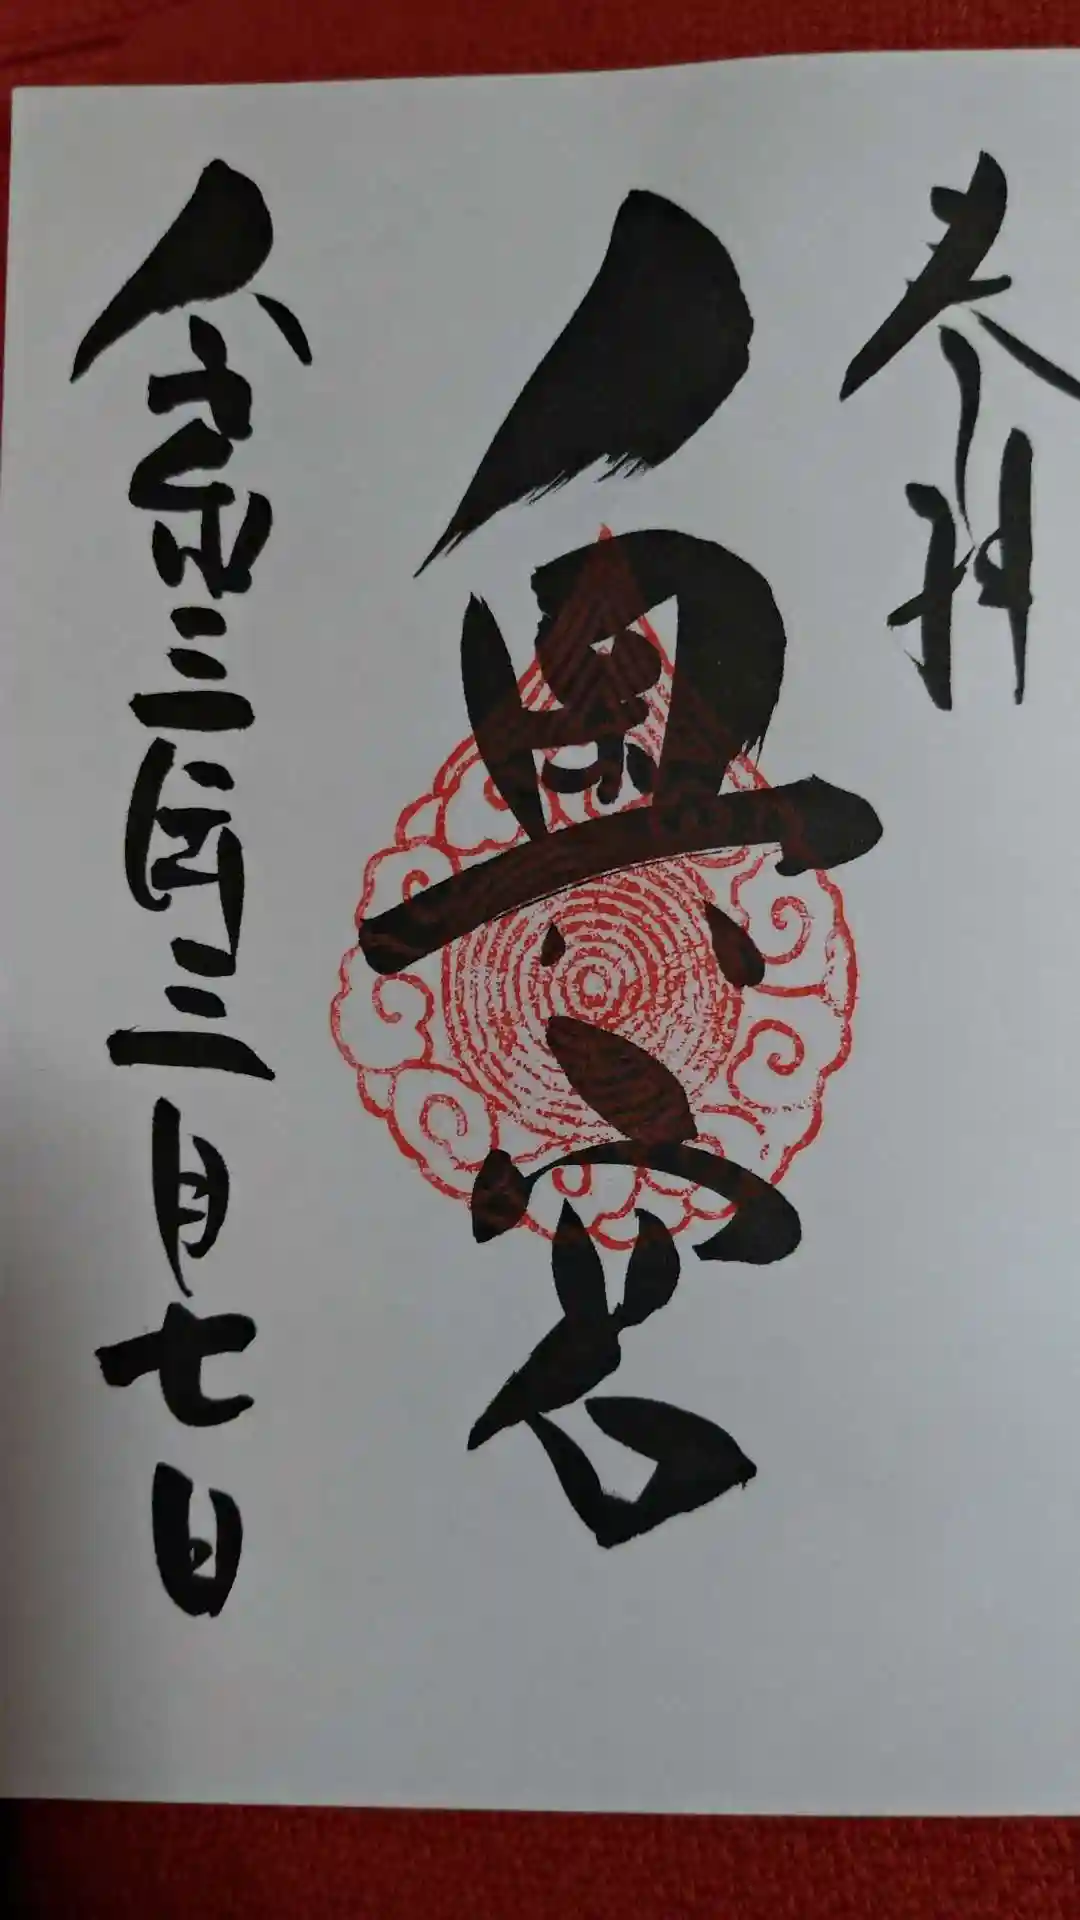 奉拝
奥宮
令和三年三月七日